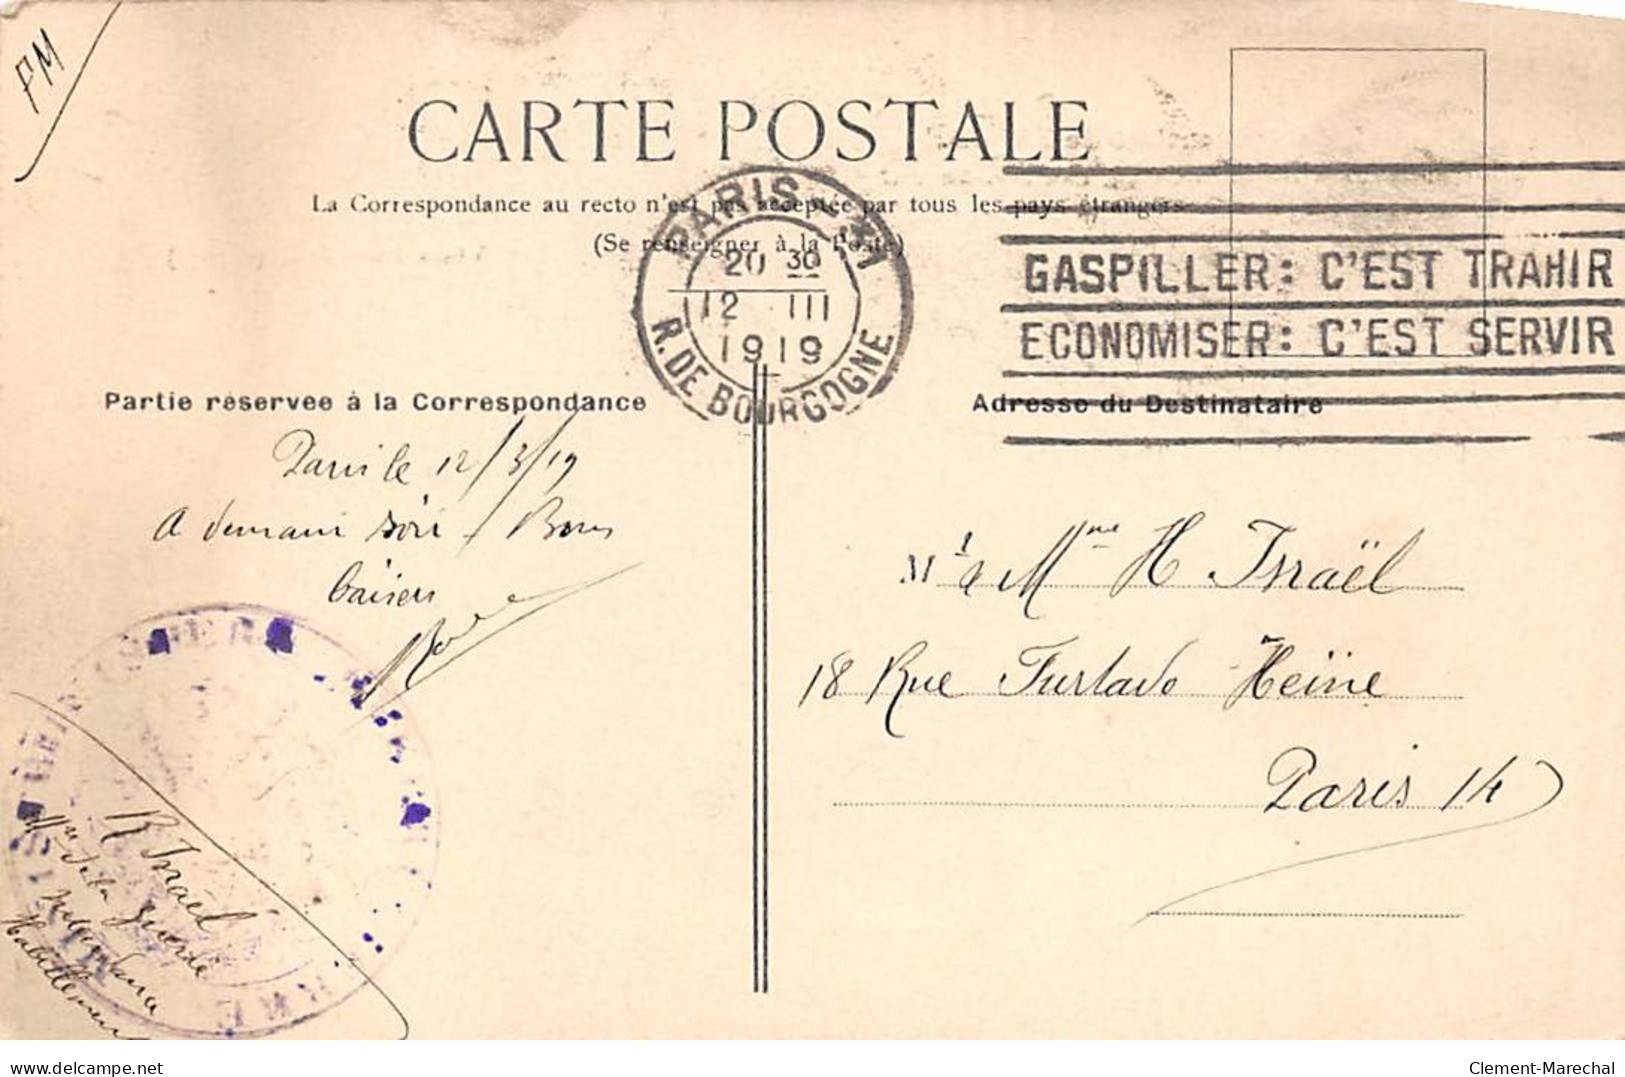 PM
CARTE POSTALE
La Correspondance au recto n'est pas acceptée par tous les pays étrangers
(Se renseigner à la Poste)
PARIS
20 30
12 III
1919
R. DE BOURGOGNE
GASPILLER: C'EST TRAHIR
ECONOMISER: C'EST SERVIR
Partie réservée à la Correspondance
Adresse du Destinataire
Paris le 12/3/19
A demain soir Bons
baisers
Mr & Mme H Israël
18 Rue Furtado Heïne
Paris 14
R Israël
Mre de la guerre
Habillement
www.delcampe.net
Clement-Marechal